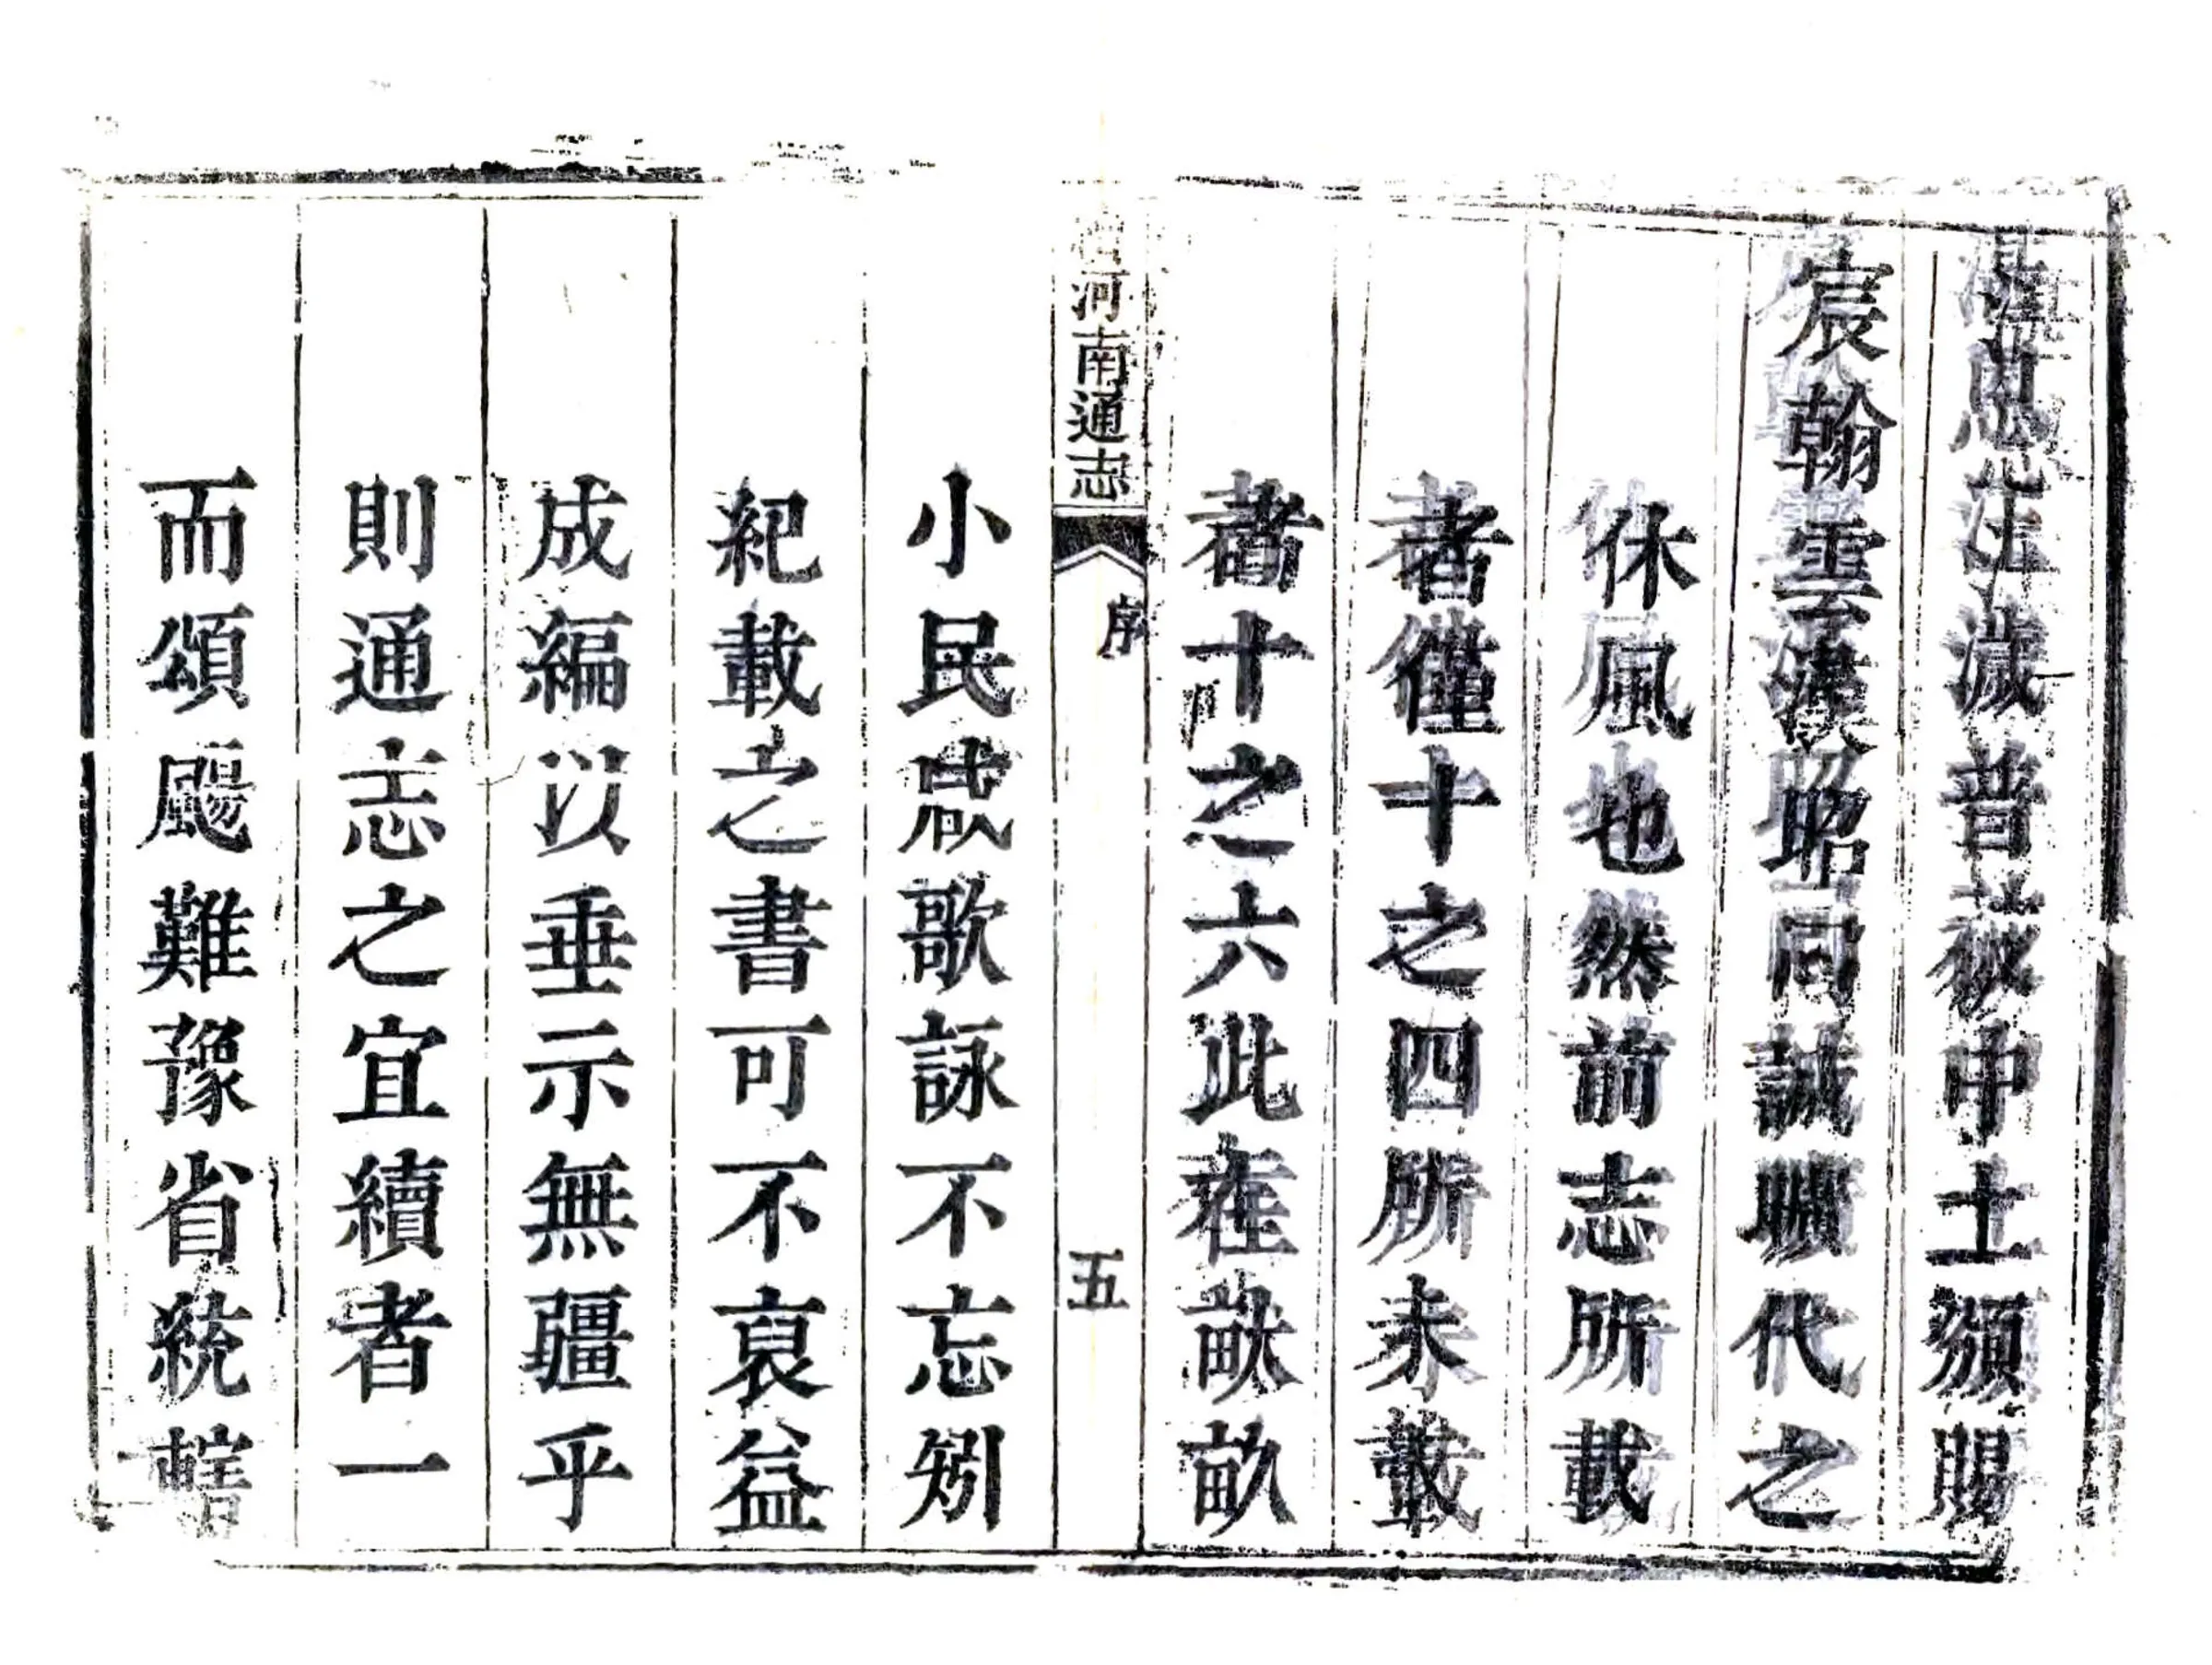 恩汪濊普被中土頒賜
宸翰雲漢昭同誠曠代之
休風也然前志所載
者僅十之四所未載
者十之六此在畎畝
河南通志
序
五
小民咸歌詠不忘矧
紀載之書可不裒益
成編以垂示無疆乎
則通志之宜續者一
而頌颺難豫省統轄